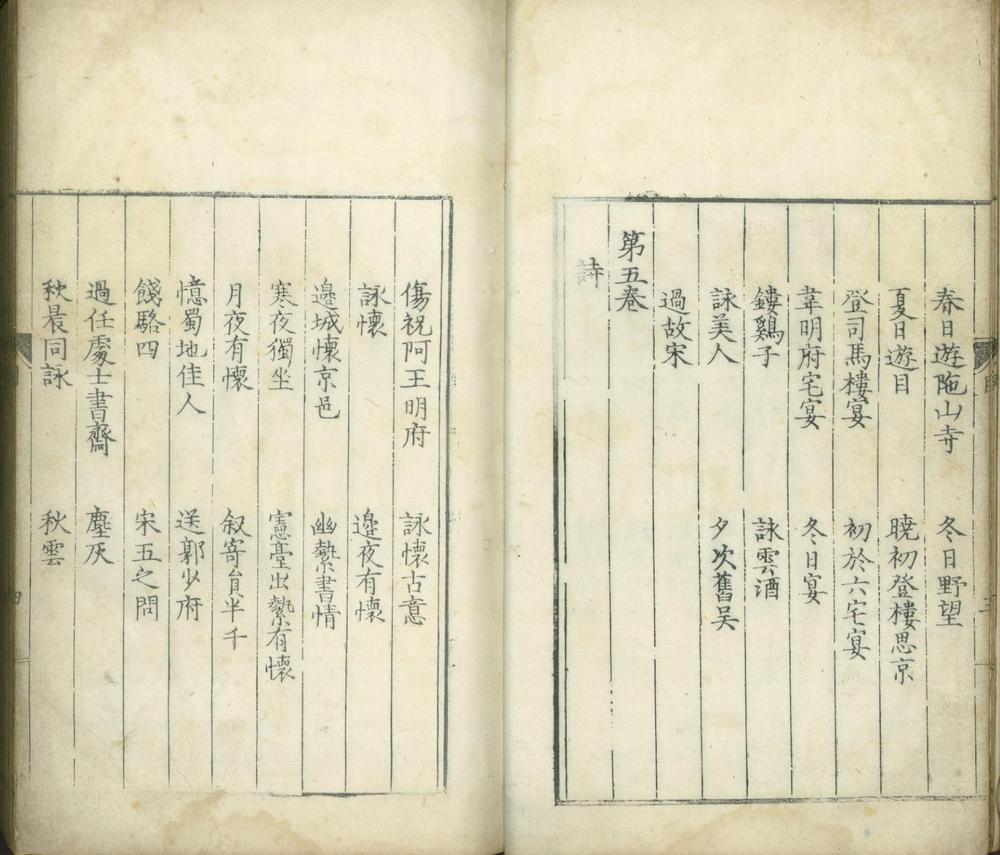 春日遊陁山寺　冬日野望
夏日遊目　曉初登樓思京
登司馬樓宴　初於六宅宴
韋明府宅宴　冬日宴
鏤鷄子　詠雲酒
詠美人　夕次舊吴
過故宋
第五卷
詩
傷祝阿王明府　詠懷古意
詠懷　邊夜有懷
邉城懷京邑　幽縶書情
寒夜獨坐　憲臺出縶有懷
月夜有懷　叙寄員半千
憶蜀地佳人　送郭少府
餞駱四　宋五之問
過任處士書齋　塵灰
秋晨同詠　秋雲